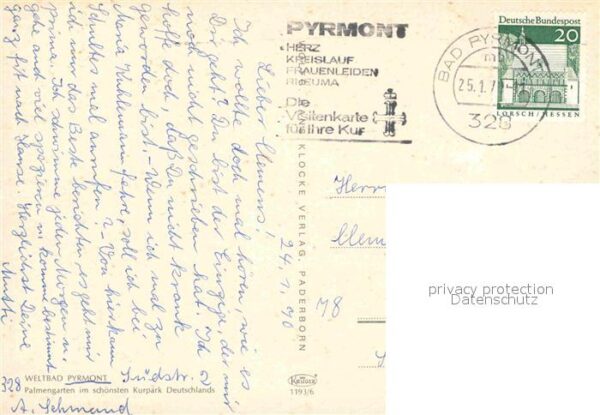 Lieber Clemens! 24.1.70
Ich wollte doch mal hören, wie es
Dir geht? Du bist der Einzige, der mir
noch nicht geschrieben hat. Ich
hoffe doch, daß Du nicht krank
geworden bist. - Wenn ich mal zu
Anna Kuhlemann fahre, soll ich bei
Schultes mal anrufen? - Von hier kann
ich nur das Beste berichten, es geht mir
prima. Ich schwimme jeden Morgen u.
gehe auch viel spazieren u. komme bestimmt
ganz fit nach Hause. Herzlichst Deine
Mutti
328 WELTBAD PYRMONT Südstr.
Palmengarten im schönsten Kurpark Deutschlands
A. Schmand
KLOCKE VERLAG, PADERBORN
Krüger
1193/6
PYRMONT
HERZ
KREISLAUF
FRAUENLEIDEN
RHEUMA
Die
Visitenkarte
für Ihre Kur
BAD PYRMONT
mb
25.1.7
328
Deutsche Bundespost
20
LORSCH/HESSEN
Herrn
Clem
78
privacy protection
Datenschutz